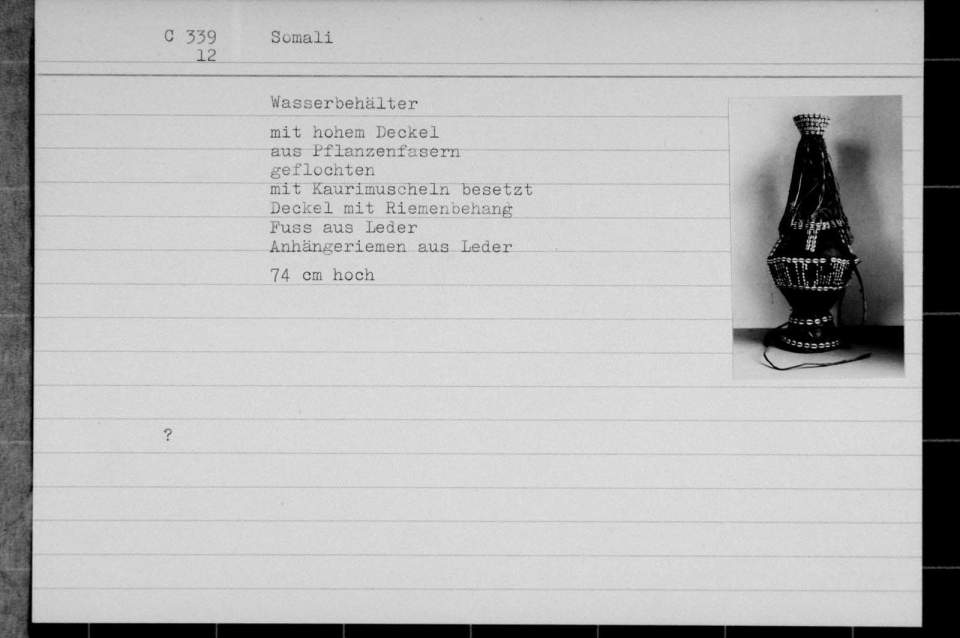 C 339 Somali
12
Wasserbehälter
mit hohem Deckel
aus Pflanzenfasern
geflochten
mit Kaurimuscheln besetzt
Deckel mit Riemenbehang
Fuss aus Leder
Anhängeriemen aus Leder
74 cm hoch
?